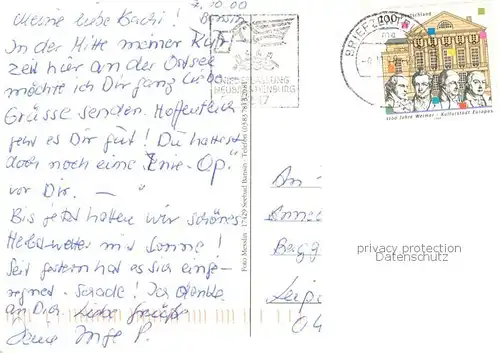 7.10.00
Meine liebe Bachi! Bansin
In der Mitte meiner Kur-
zeit hier an der Ostsee
möchte ich Dir ganz liebe
Grüsse senden. Hoffentlich
geht es Dir gut! Du hattest
doch noch eine "Knie-Op."
vor Dir. — "
Bis jetzt hatten wir schönes
Herbstwetter mit Sonne!
Seit gestern hat es sich einge-
regnet - schade! Ich denke
an Dich. Liebe Grüße
Deine Inge P.
Foto Mensing 17429 Seebad Bansin Telefon
BRIEFZENTRUM
NEUBRANDENBURG
17
100 Deutschland
1100 Jahre Weimar - Kulturstadt Europas
An
Anne
Berg
Leip
04
privacy protection
Datenschutz